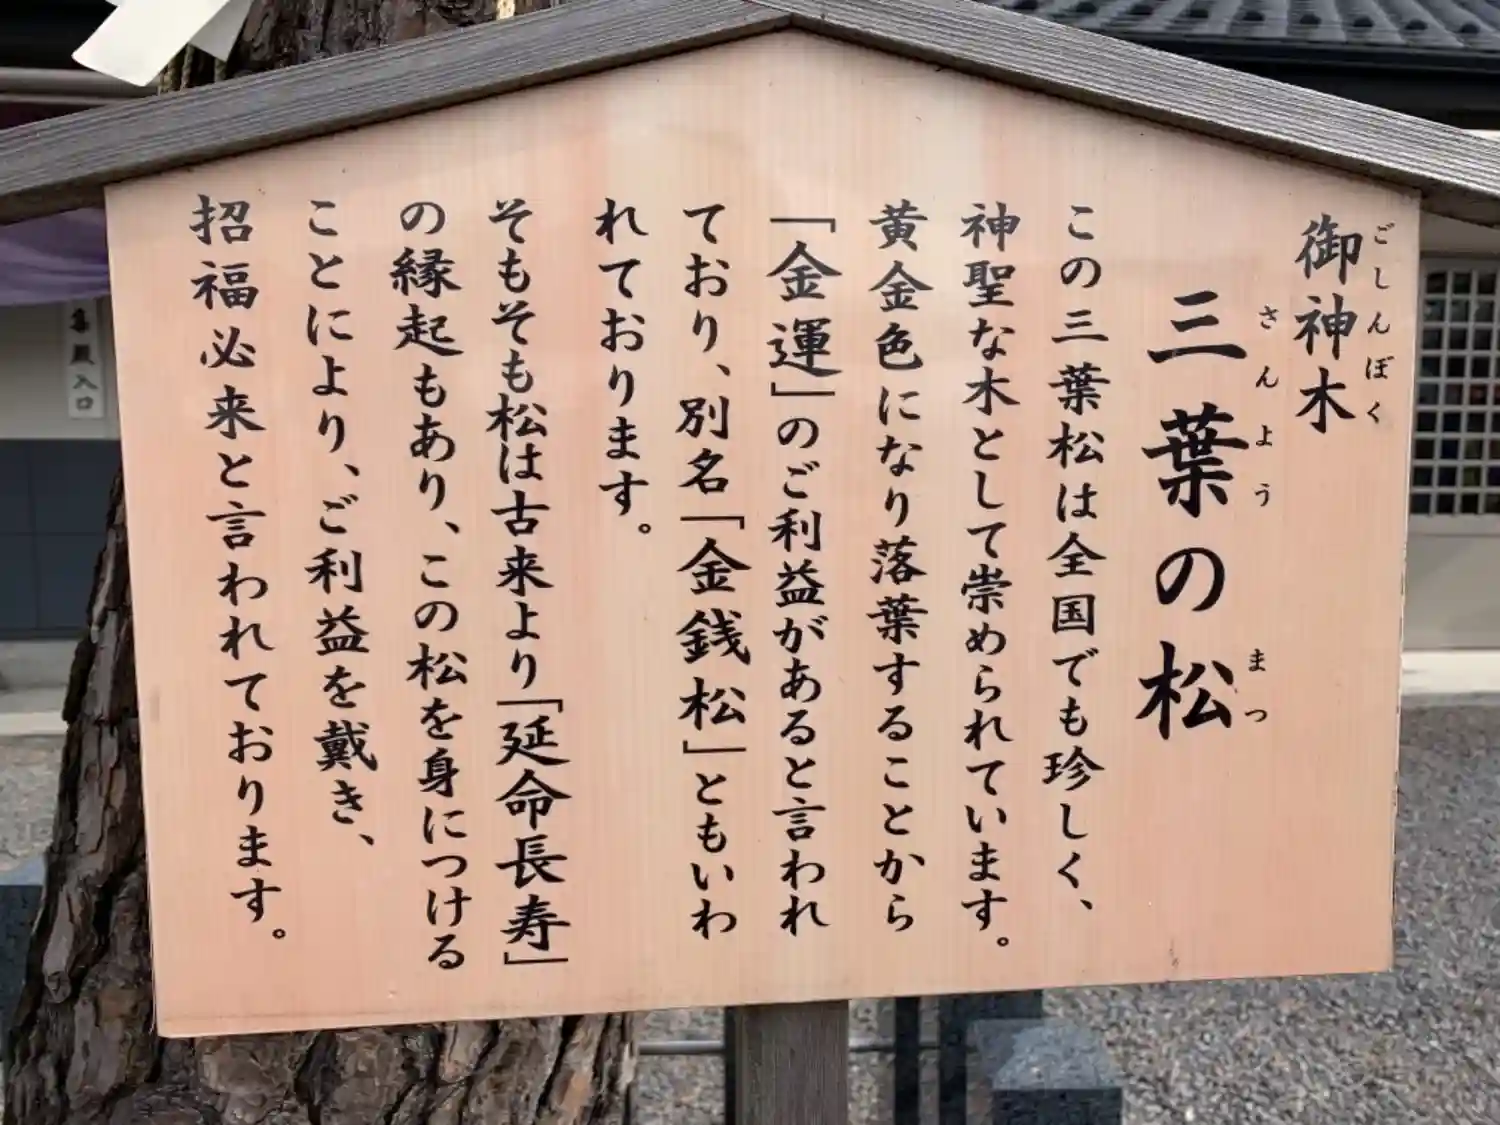 御神木
ごしんぼく
三葉の松
さんよう まつ
この三葉松は全国でも珍しく、
神聖な木として崇められています。
黄金色になり落葉することから
「金運」のご利益があると言われ
ており、別名「金銭松」ともいわ
れております。
そもそも松は古来より「延命長寿」
の縁起もあり、この松を身につける
ことにより、ご利益を戴き、
招福必来と言われております。
入口